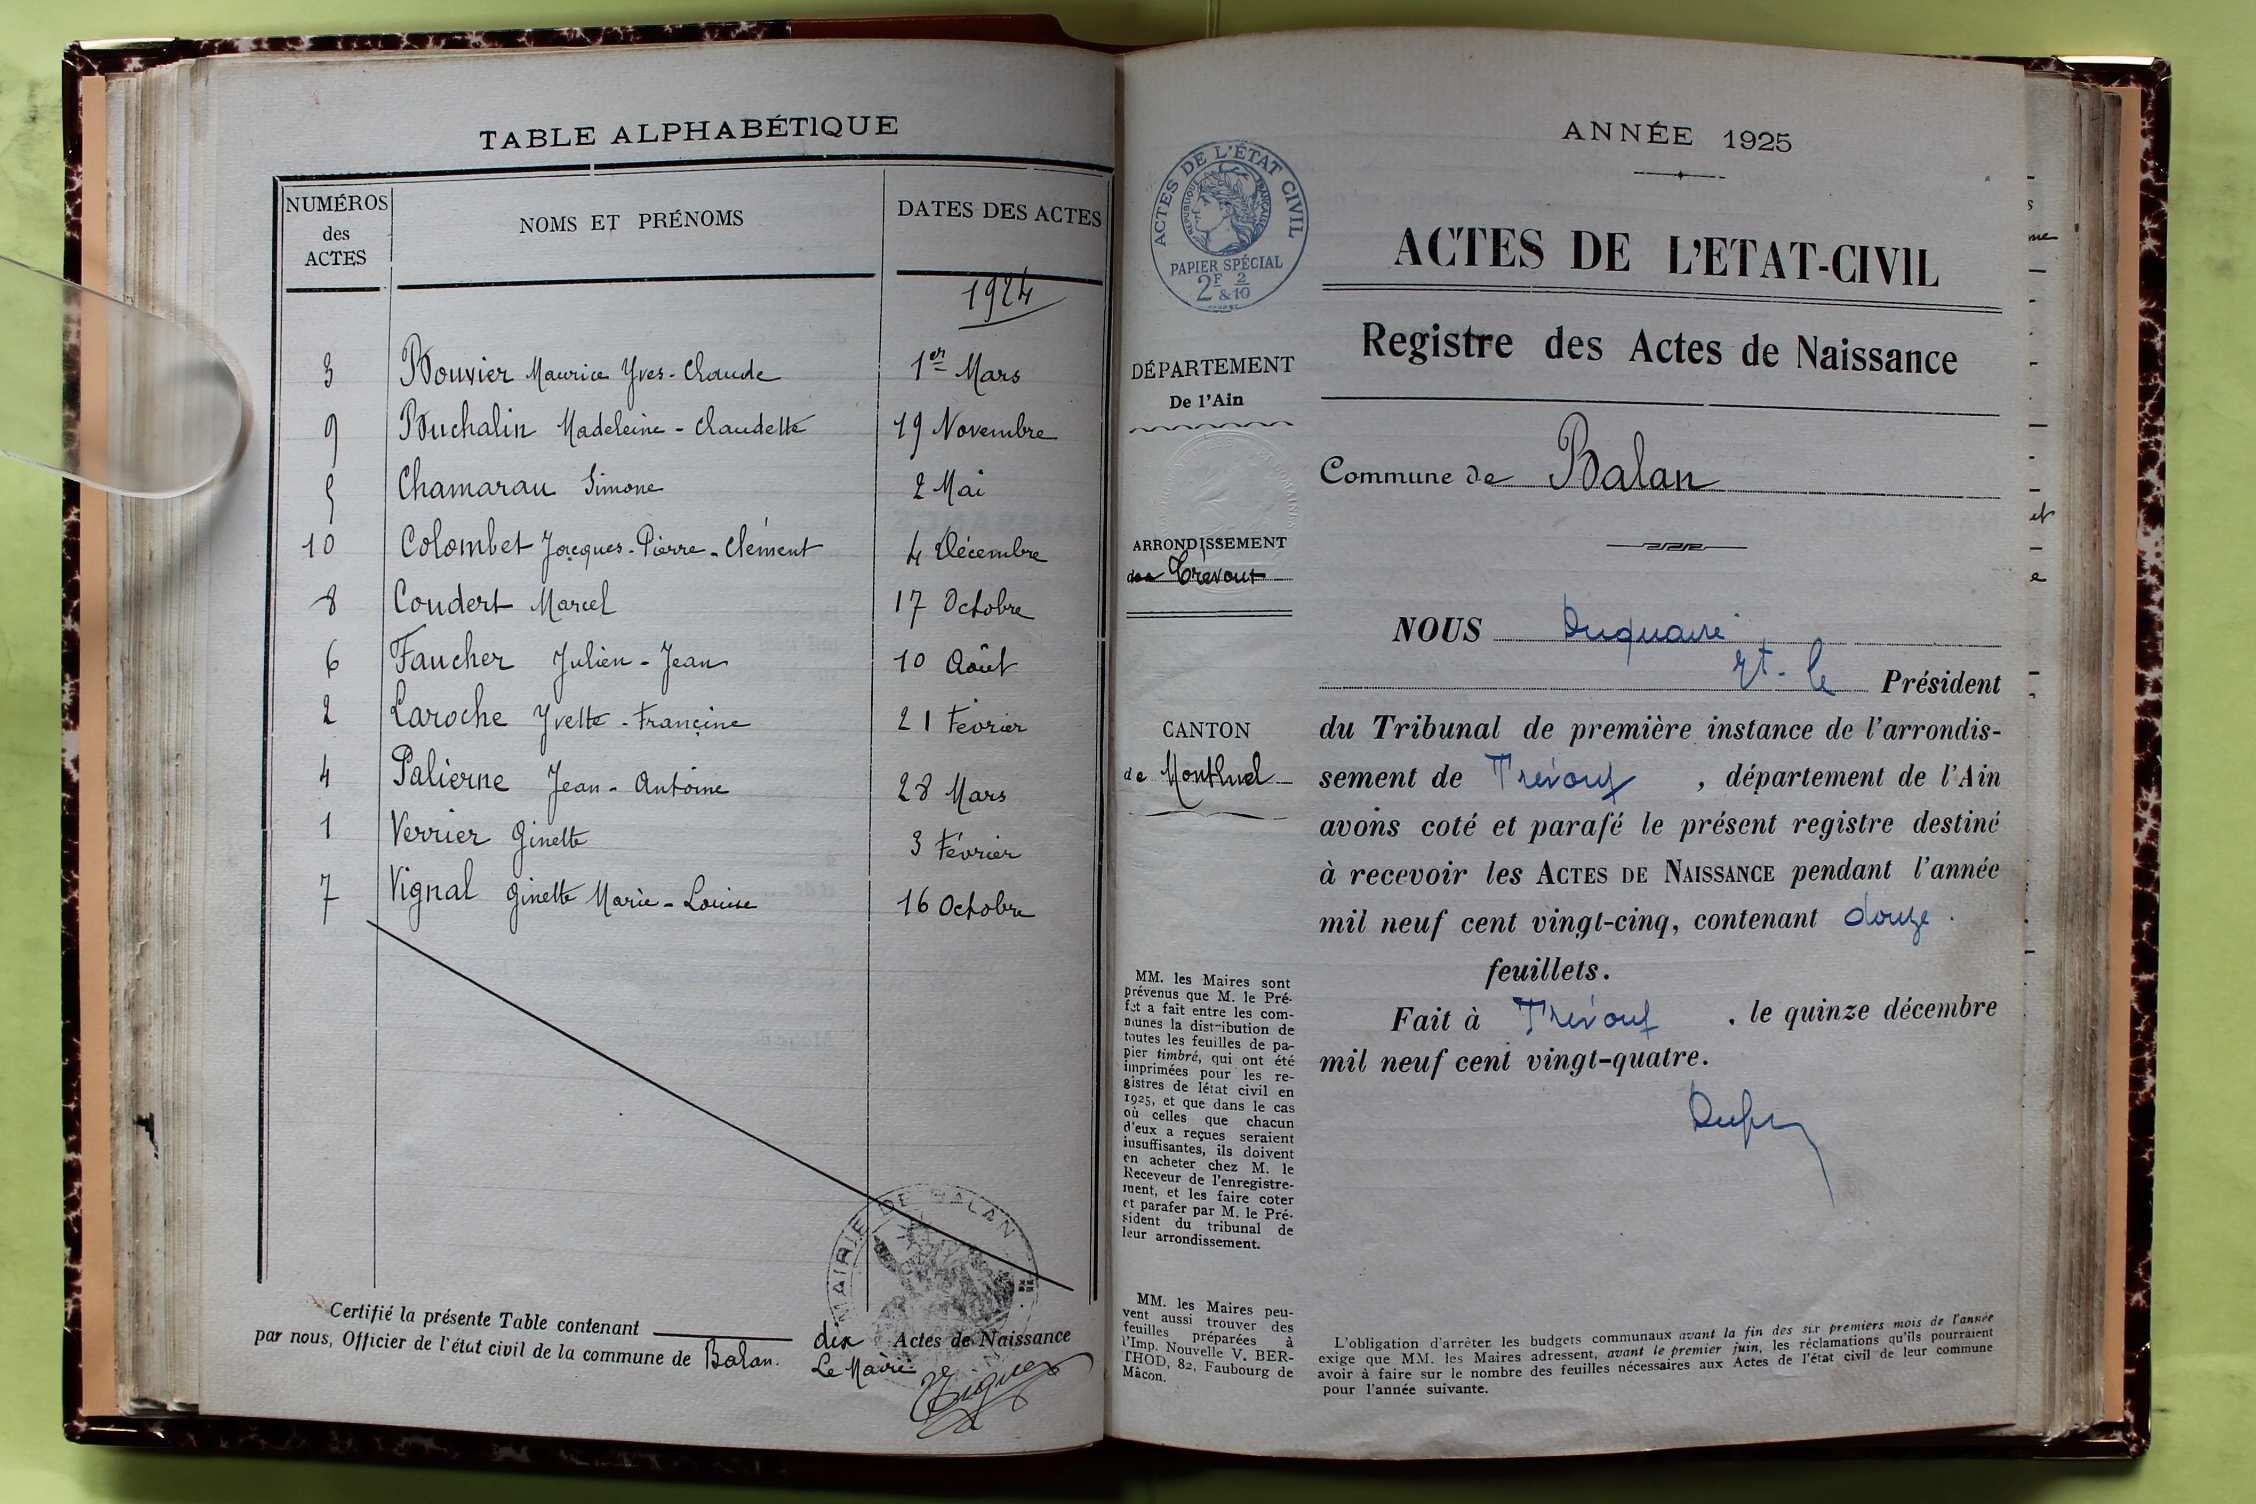 TABLE ALPHABÉTIQUE
NUMÉROS
des
ACTES
NOMS ET PRÉNOMS
DATES DES ACTES
1924
3 Bouvier Maurice Yves-Claude 1er Mars
9 Buchalin Madeleine-Claudette 19 Novembre
5 Chamarau Simone 2 Mai
10 Colombet Jacques-Pierre-Clément 4 Décembre
8 Coudert Marcel 17 Octobre
6 Faucher Julien-Jean 10 Août
2 Laroche Yvette-Françine 21 Février
4 Palierne Jean-Antoine 28 Mars
1 Verrier Ginette 3 Février
7 Vignal Ginette Marie-Louise 16 Octobre
MAIRIE DE BALAN
Certifié la présente Table contenant dix Actes de Naissance
par nous, Officier de l'état civil de la commune de Balan.
Le Maire
ANNÉE 1925
ACTES DE L'ÉTAT CIVIL
RÉPUBLIQUE FRANÇAISE
PAPIER SPÉCIAL
2F 2
&10
DÉPARTEMENT
De l'Ain
ARRONDISSEMENT
de Trévoux
CANTON
de Montluel
MM. les Maires sont
prévenus que M. le Pré-
fet a fait entre les com-
munes la distribution de
toutes les feuilles de pa-
pier timbré, qui ont été
imprimées pour les re-
gistres de létat civil en
1925, et que dans le cas
où celles que chacun
d'eux a reçues seraient
insuffisantes, ils doivent
en acheter chez M. le
Receveur de l'enregistre-
ment, et les faire coter
et parafer par M. le Pré-
sident du tribunal de
leur arrondissement.
MM. les Maires peu-
vent aussi trouver des
feuilles préparées à
l'Imp. Nouvelle V. BER-
THOD, 82, Faubourg de
Mâcon.
ACTES DE L'ETAT-CIVIL
Registre des Actes de Naissance
Commune de Balan
NOUS Duquaire
Président
du Tribunal de première instance de l'arrondis-
sement de Trévoux, département de l'Ain
avons coté et parafé le présent registre destiné
à recevoir les ACTES DE NAISSANCE pendant l'année
mil neuf cent vingt-cinq, contenant douze
feuillets.
Fait à Trévoux, le quinze décembre
mil neuf cent vingt-quatre.
L'obligation d'arrêter les budgets communaux avant la fin des six premiers mois de l'année
exige que MM. les Maires adressent, avant le premier juin, les réclamations qu'ils pourraient
avoir à faire sur le nombre des feuilles nécessaires aux Actes de l'état civil de leur commune
pour l'année suivante.